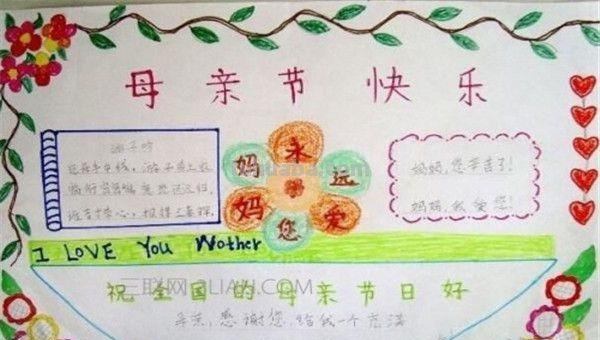 母亲节快乐
游子吟
慈母手中线，游子身上衣
临行密密缝 意恐迟迟归
谁言寸草心，报得三春晖
永远爱您妈妈
妈妈,您辛苦了!
妈妈,我爱您!
I LOVE You Wother
三联网 3LIAN.COM
祝全国的母亲节日好
母亲,感谢您,给我一个充满